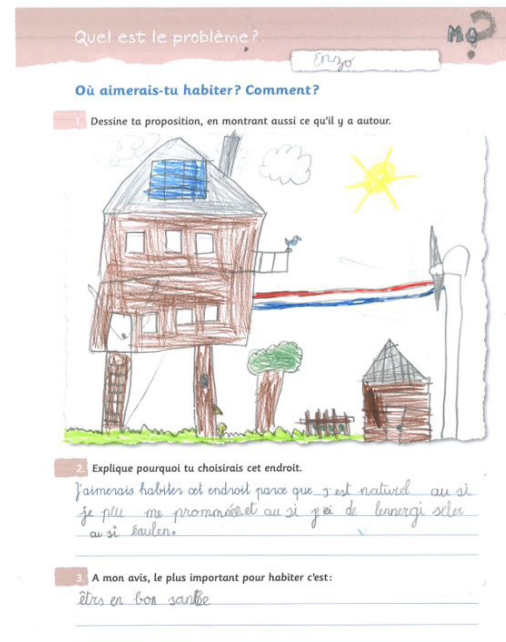 Quel est le problème?
MQ?
Enzo
Où aimerais-tu habiter? Comment?
1. Dessine ta proposition, en montrant aussi ce qu'il y a autour.
2. Explique pourquoi tu choisirais cet endroit.
J'aimerais habiter cet endroit parce que s'est naturel au si
je peu me prommnée et au si j'ei de lennergi seler
au si éaulen.
3. A mon avis, le plus important pour habiter c'est:
êtrs en bon santée